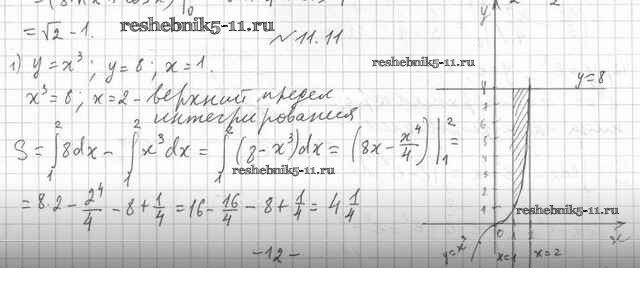 = √2 - 1.
reshebnik5-11.ru
№ 11.11
1) y = x³; y = 8; x = 1.
x³ = 8; x = 2 - верхний предел
интегрирования
S = ∫₁² 8dx - ∫₁² x³dx = ∫₁² (8 - x³)dx = (8x - x⁴/4) |₁² =
reshebnik5-11.ru
= 8·2 - 2⁴/4 - 8 + 1/4 = 16 - 16/4 - 8 + 1/4 = 4 1/4
- 12 -
y
reshebnik5-11.ru
y = 8
reshebnik5-11.ru
0 1 2 x
y = x³ x = 1 x = 2